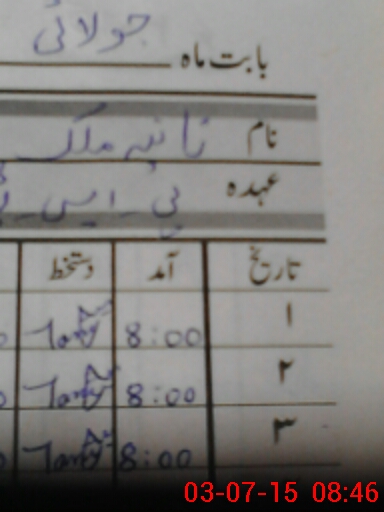 بابت ماہ جولائی
نام تانیہ ملک
عہدہ پی۔ایس۔ٹی
تاریخ آمد دستخط
۱ 8:00
۲ 8:00
۳ 8:00
03-07-15 08:46